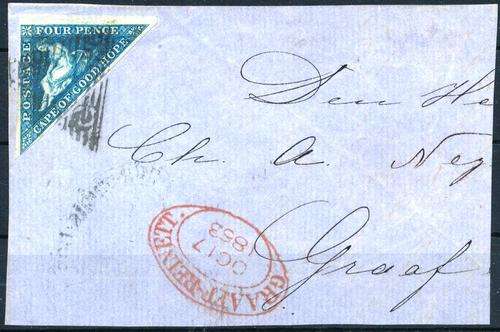 POSTAGE
FOUR PENCE
CAPE OF GOOD HOPE
Den He
Ch. A. Ney
Graaf
GRAAFF-REINETT.
OC 17
1853